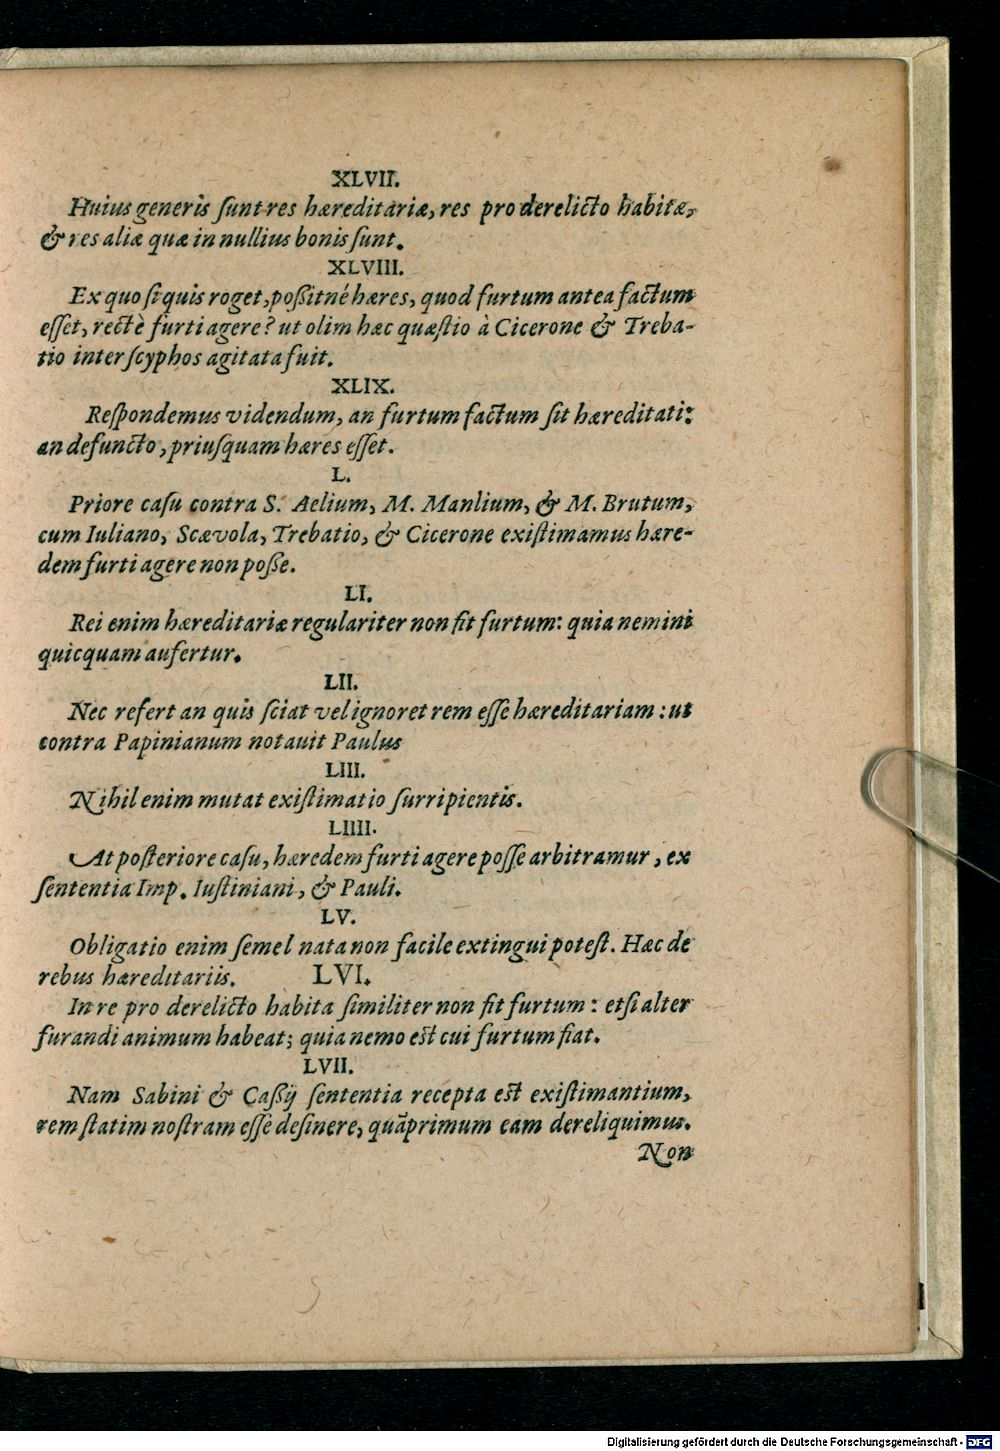 XLVII.
Huius generis ſunt res hæreditariæ, res pro derelicto habitæ,
& res aliæ quæ in nullius bonis ſunt.
XLVIII.
Ex quo ſi quis roget, poßitné hæres, quod furtum antea factum
eſſet, rectè furti agere? ut olim hæc quæſtio à Cicerone & Treba-
tio inter ſcyphos agitata fuit.
XLIX.
Reſpondemus videndum, an furtum factum ſit hæreditati:
an defuncto, priuſquam hæres eſſet.
L.
Priore caſu contra S. Aelium, M. Manlium, & M. Brutum,
cum Iuliano, Scævola, Trebatio, & Cicerone exiſtimamus hære-
dem furti agere non poße.
LI.
Rei enim hæreditariæ regulariter non fit furtum: quia nemini
quicquam aufertur.
LII.
Nec refert an quis ſciat vel ignoret rem eſſe hæreditariam: ut
contra Papinianum notauit Paulus
LIII.
Nihil enim mutat exiſtimatio ſurripientis.
LIIII.
At poſteriore caſu, hæredem furti agere poſſe arbitramur, ex
ſententia Imp. Iuſtiniani, & Pauli.
LV.
Obligatio enim ſemel nata non facile extingui poteſt. Hæc de
rebus hæreditariis.
LVI.
In re pro derelicto habita ſimiliter non fit furtum: etſi alter
furandi animum habeat; quia nemo eſt cui furtum fiat.
LVII.
Nam Sabini & Caßij ſententia recepta eſt exiſtimantium,
rem ſtatim noſtram eſſe deſinere, quāprimum eam dereliquimus.
Non
Digitalisierung gefördert durch die Deutsche Forschungsgemeinschaft - DFG